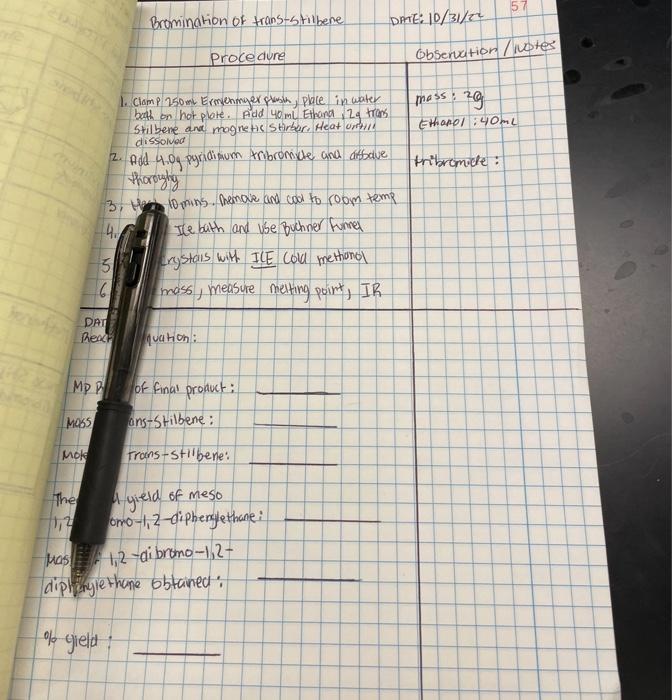 57
Bromination of trans-stilbene DATE: 10/31/22
Procedure
Observation / Notes
1. Clamp 250mL Ermenmyer flask, place in water
bath on hot plate. Add 40mL Ethanol, 2g trans
stilbene and magnetic stirbar. Heat
dissolved
2. Add 4.0g pyridinium tribromide and
3. 10 mins. Remove and cool to room temp
4. Ice bath and Use Buchner funnel
5 crystals with ICE cold methanol
6 mass, measure melting point, IR
mass: 2g
Ethanol: 40mL
tribromide:
DAT
Reac quation:
MP of final product:
Mass ans-Stilbene:
Mole Trans-stilbene:
The yield of meso
1,2 omo-1,2-diphenylethane:
Mas 1,2-dibromo-1,2-
diphenylethane obtained:
% yield: